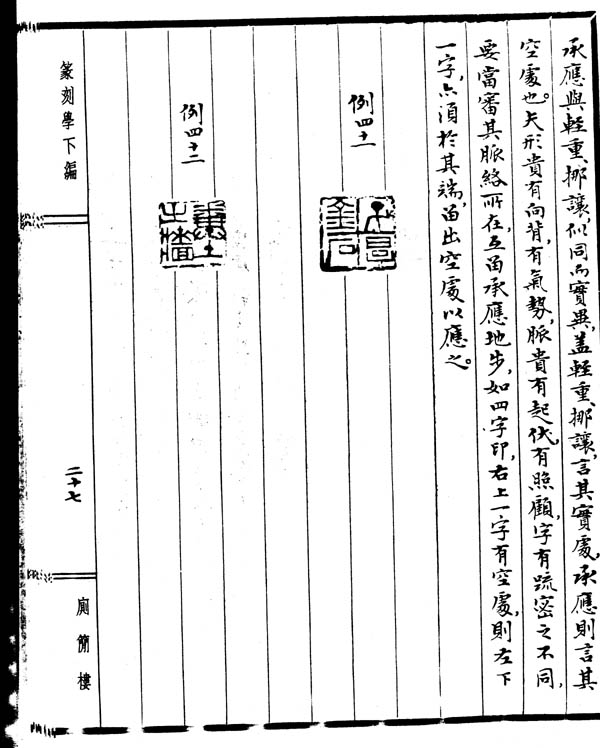 承應與輕重、挪讓、似同而實異、蓋輕重、挪讓、言其實處、承應則言其
空處也。夫形貴有向背、有氣勢、脈貴有起伏、有照顧、字有疏密之不同、
要當審其脈絡所在、互留承應地步、如四字印、右上一字有空處、則左下
一字、亦須於其端、留出空處以應之。
例四十一
例四十二
篆刻學下編
二十七
廁簡樓